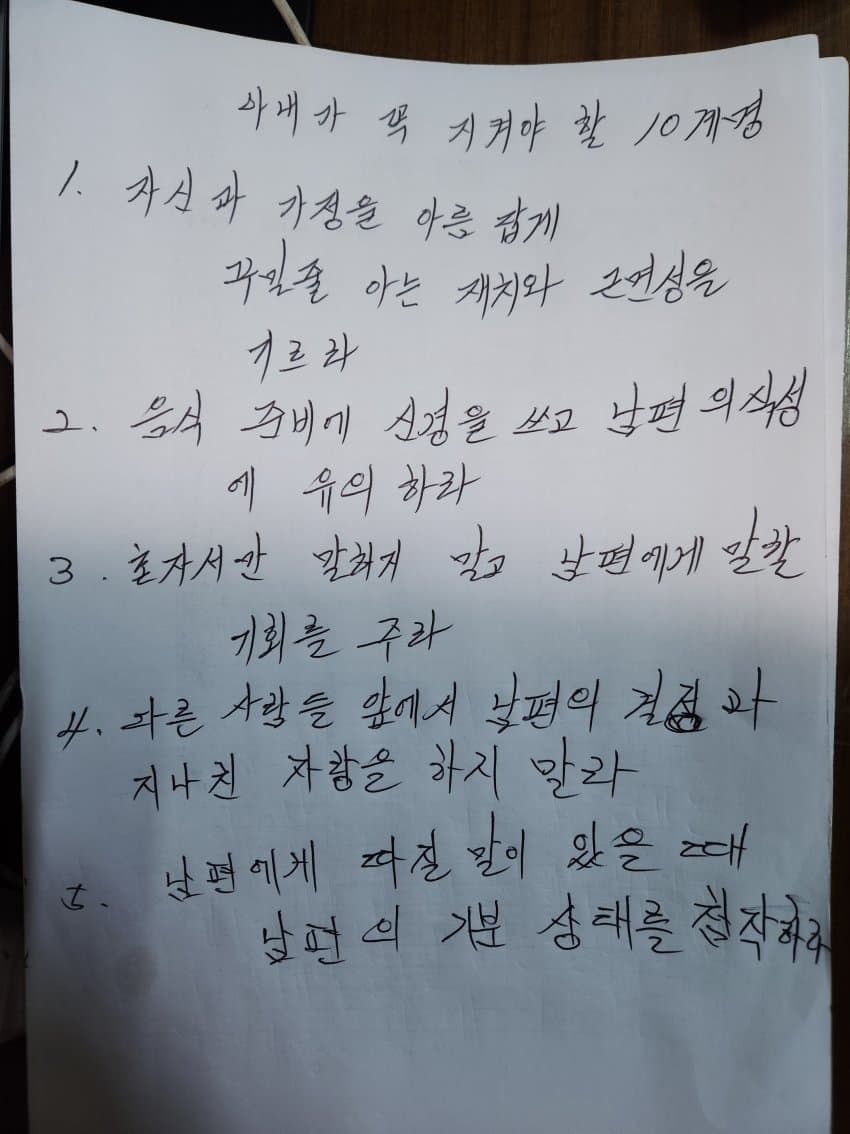 아내가 꼭 지켜야 할 10계경
1. 자신과 가정을 아름답게
꾸밀줄 아는 재치와 근면성을
기르라
2. 음식 준비에 신경을 쓰고 남편의식성
에 유의 하라
3. 혼자서만 말하지 말고 남편에게 말할
기회를 주라
4. 다른 사람들 앞에서 남편의 결점과
지나친 자랑을 하지 말라
5. 남편에게 따질 말이 있을 때
남편의 기분 상태를 참작하라